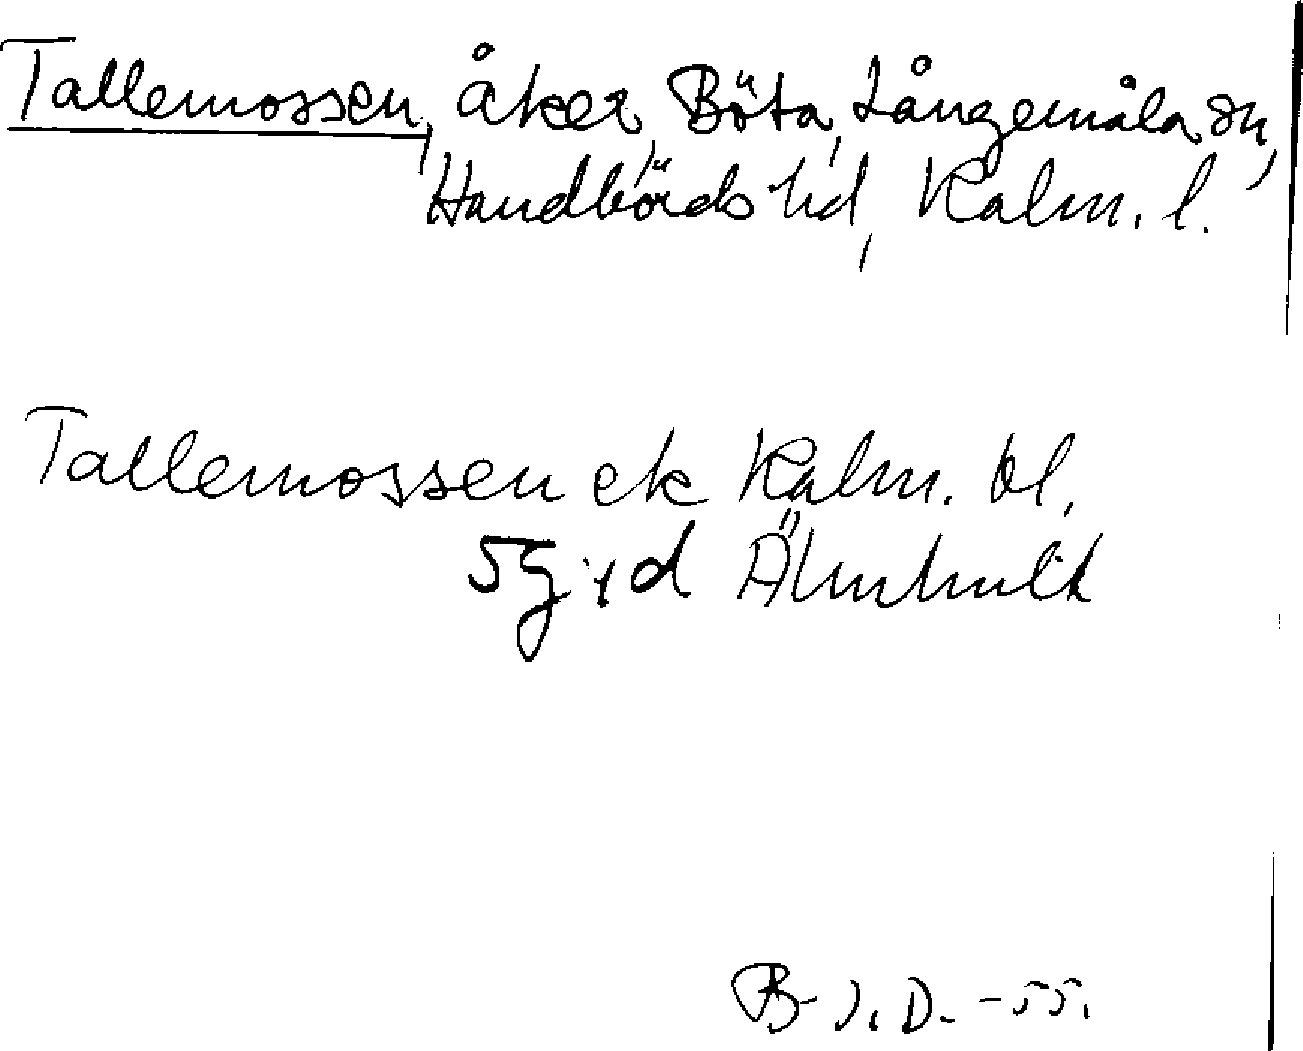 Tallemossen, åker, Böta, Långemåla sn,
Handbörds hd, Kalm. l.
Tallemossen ek Kalm. bl.
5g Älmhult
B- J. D. -55.